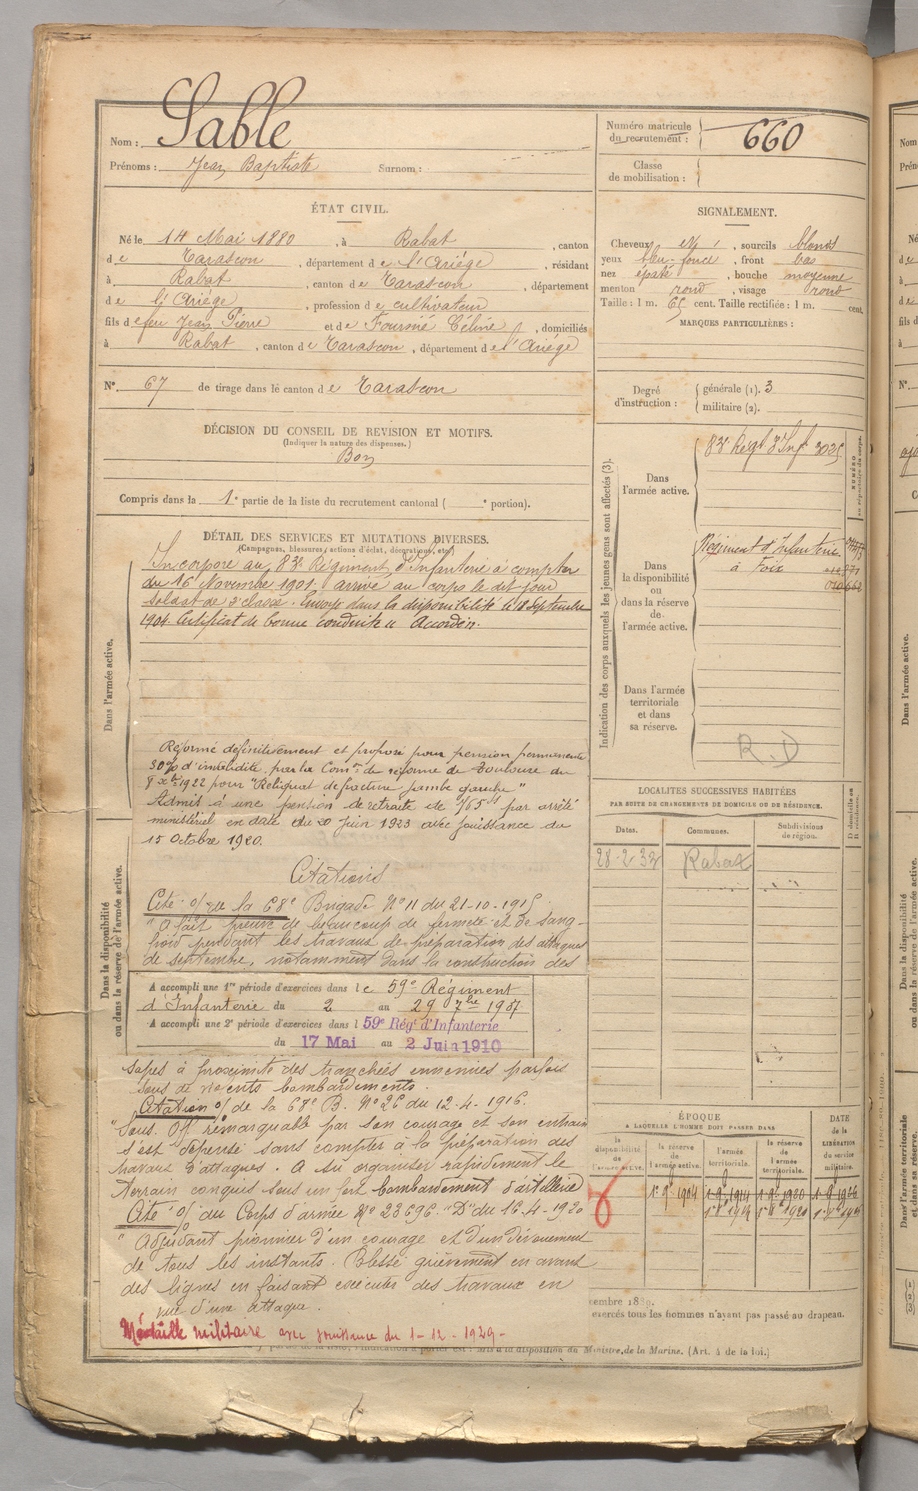 Nom : Sable
Prénoms : Jean Baptiste Surnom :
Numéro matricule
du recrutement : 660
Classe
de mobilisation :
ÉTAT CIVIL.
Né le 14 Mai 1880, à Rabat, canton
de Tarascon, département de l'Ariége, résidant
à Rabat, canton de Tarascon, département
de l'Ariége, profession de cultivateur
fils de feu Jean Pierre et de Fournié Céline, domiciliés
à Rabat, canton de Tarascon, département de l'Ariége
N° 67 de tirage dans le canton de Tarascon
SIGNALEMENT.
Cheveux et, sourcils blonds
yeux bleu-foncé, front bas
nez épaté, bouche moyenne
menton rond, visage rond
Taille : 1 m. 65 cent. Taille rectifiée : 1 m. cent.
MARQUES PARTICULIÈRES :
Degré
d'instruction :
générale (1). 3
militaire (2).
DÉCISION DU CONSEIL DE REVISION ET MOTIFS.
(Indiquer la nature des dispenses.)
Bon
Compris dans la 1e partie de la liste du recrutement cantonal ( e portion).
DÉTAIL DES SERVICES ET MUTATIONS DIVERSES.
(Campagnes, blessures, actions d'éclat, décorations, etc.)
Dans l'armée active.
Incorporé au 83e Régiment d'Infanterie à compter
du 16 Novembre 1901, arrivé au corps le dit jour
soldat de 2e classe. Envoyé dans la disponibilité le 18 Septembre
1904. Certificat de bonne conduite "Accordé".
Réformé définitivement et proposé pour pension permanente
30% d'invalidité par la Comon de réforme de Toulouse du
8 xbre 1922 pour "Reliquat de fracture jambe gauche"
Admis à une pension de retraite de par arrêté
ministériel en date du 20 Juin 1923 avec jouissance du
15 Octobre 1920.
Citations
Dans la disponibilité
ou dans la réserve de l'armée active.
Cité o/ de la 68e Brigade N° 11 du 21-10-1915
"A fait preuve de beaucoup de fermeté et de sang-
froid pendant les travaux de préparation des attaques
de septembre, notamment dans la construction des
A accompli une 1re période d'exercices dans le 59e Régiment
d'Infanterie du 2 au 29 7bre 1907
A accompli une 2e période d'exercices dans l 59e Régt d'Infanterie
du 17 Mai au 2 Juin 1910
sapes à proximité des tranchées ennemies parfois
sous de violents bombardements.
Citation o/ de la 68e B. N° 26 du 12-4-1916.
"Sous Off remarquable par son courage et son entrain
s'est dépensé sans compter à la préparation des
travaux d'attaques. A su organiser rapidement le
terrain conquis sous un fort bombardement d'artillerie
Cité o/ du Corps d'armée N° 23696 "D" du 16-4-1920
"Adjudant pionnier d'un courage et d'un dévouement
de tous les instants. Blessé grièvement en avant
des lignes en faisant exécuter des travaux en
vue d'une attaque.
Médaille militaire avec jouissance du 1-12-1929-
Indication des corps auxquels les jeunes gens sont affectés (3).
Dans
l'armée active.
83e Régt d'Infie
Dans
la disponibilité
ou
dans la réserve
de
l'armée active.
Régiment d'Infanterie
à Foix
Dans l'armée
territoriale
et dans
sa réserve.
R.D
LOCALITES SUCCESSIVES HABITÉES
PAR SUITE DE CHANGEMENTS DE DOMICILE OU DE RÉSIDENCE.
Dates. Communes. Subdivisions
de région. D domicile ou
R résidence.
Rabat
ÉPOQUE
A LAQUELLE L'HOMME DOIT PASSER DANS
la
disponibilité
de
l'armée active.
la réserve
de
l'armée active.
l'armée
territoriale.
la réserve
de
l'armée
territoriale.
DATE
de la
LIBÉRATION
du service
militaire.
1er 9bre 1904
embre 1889.
exercés tous les hommes n'ayant pas passé au drapeau.
mis à la disposition du Ministre de la Marine. (Art. 4 de la loi.)